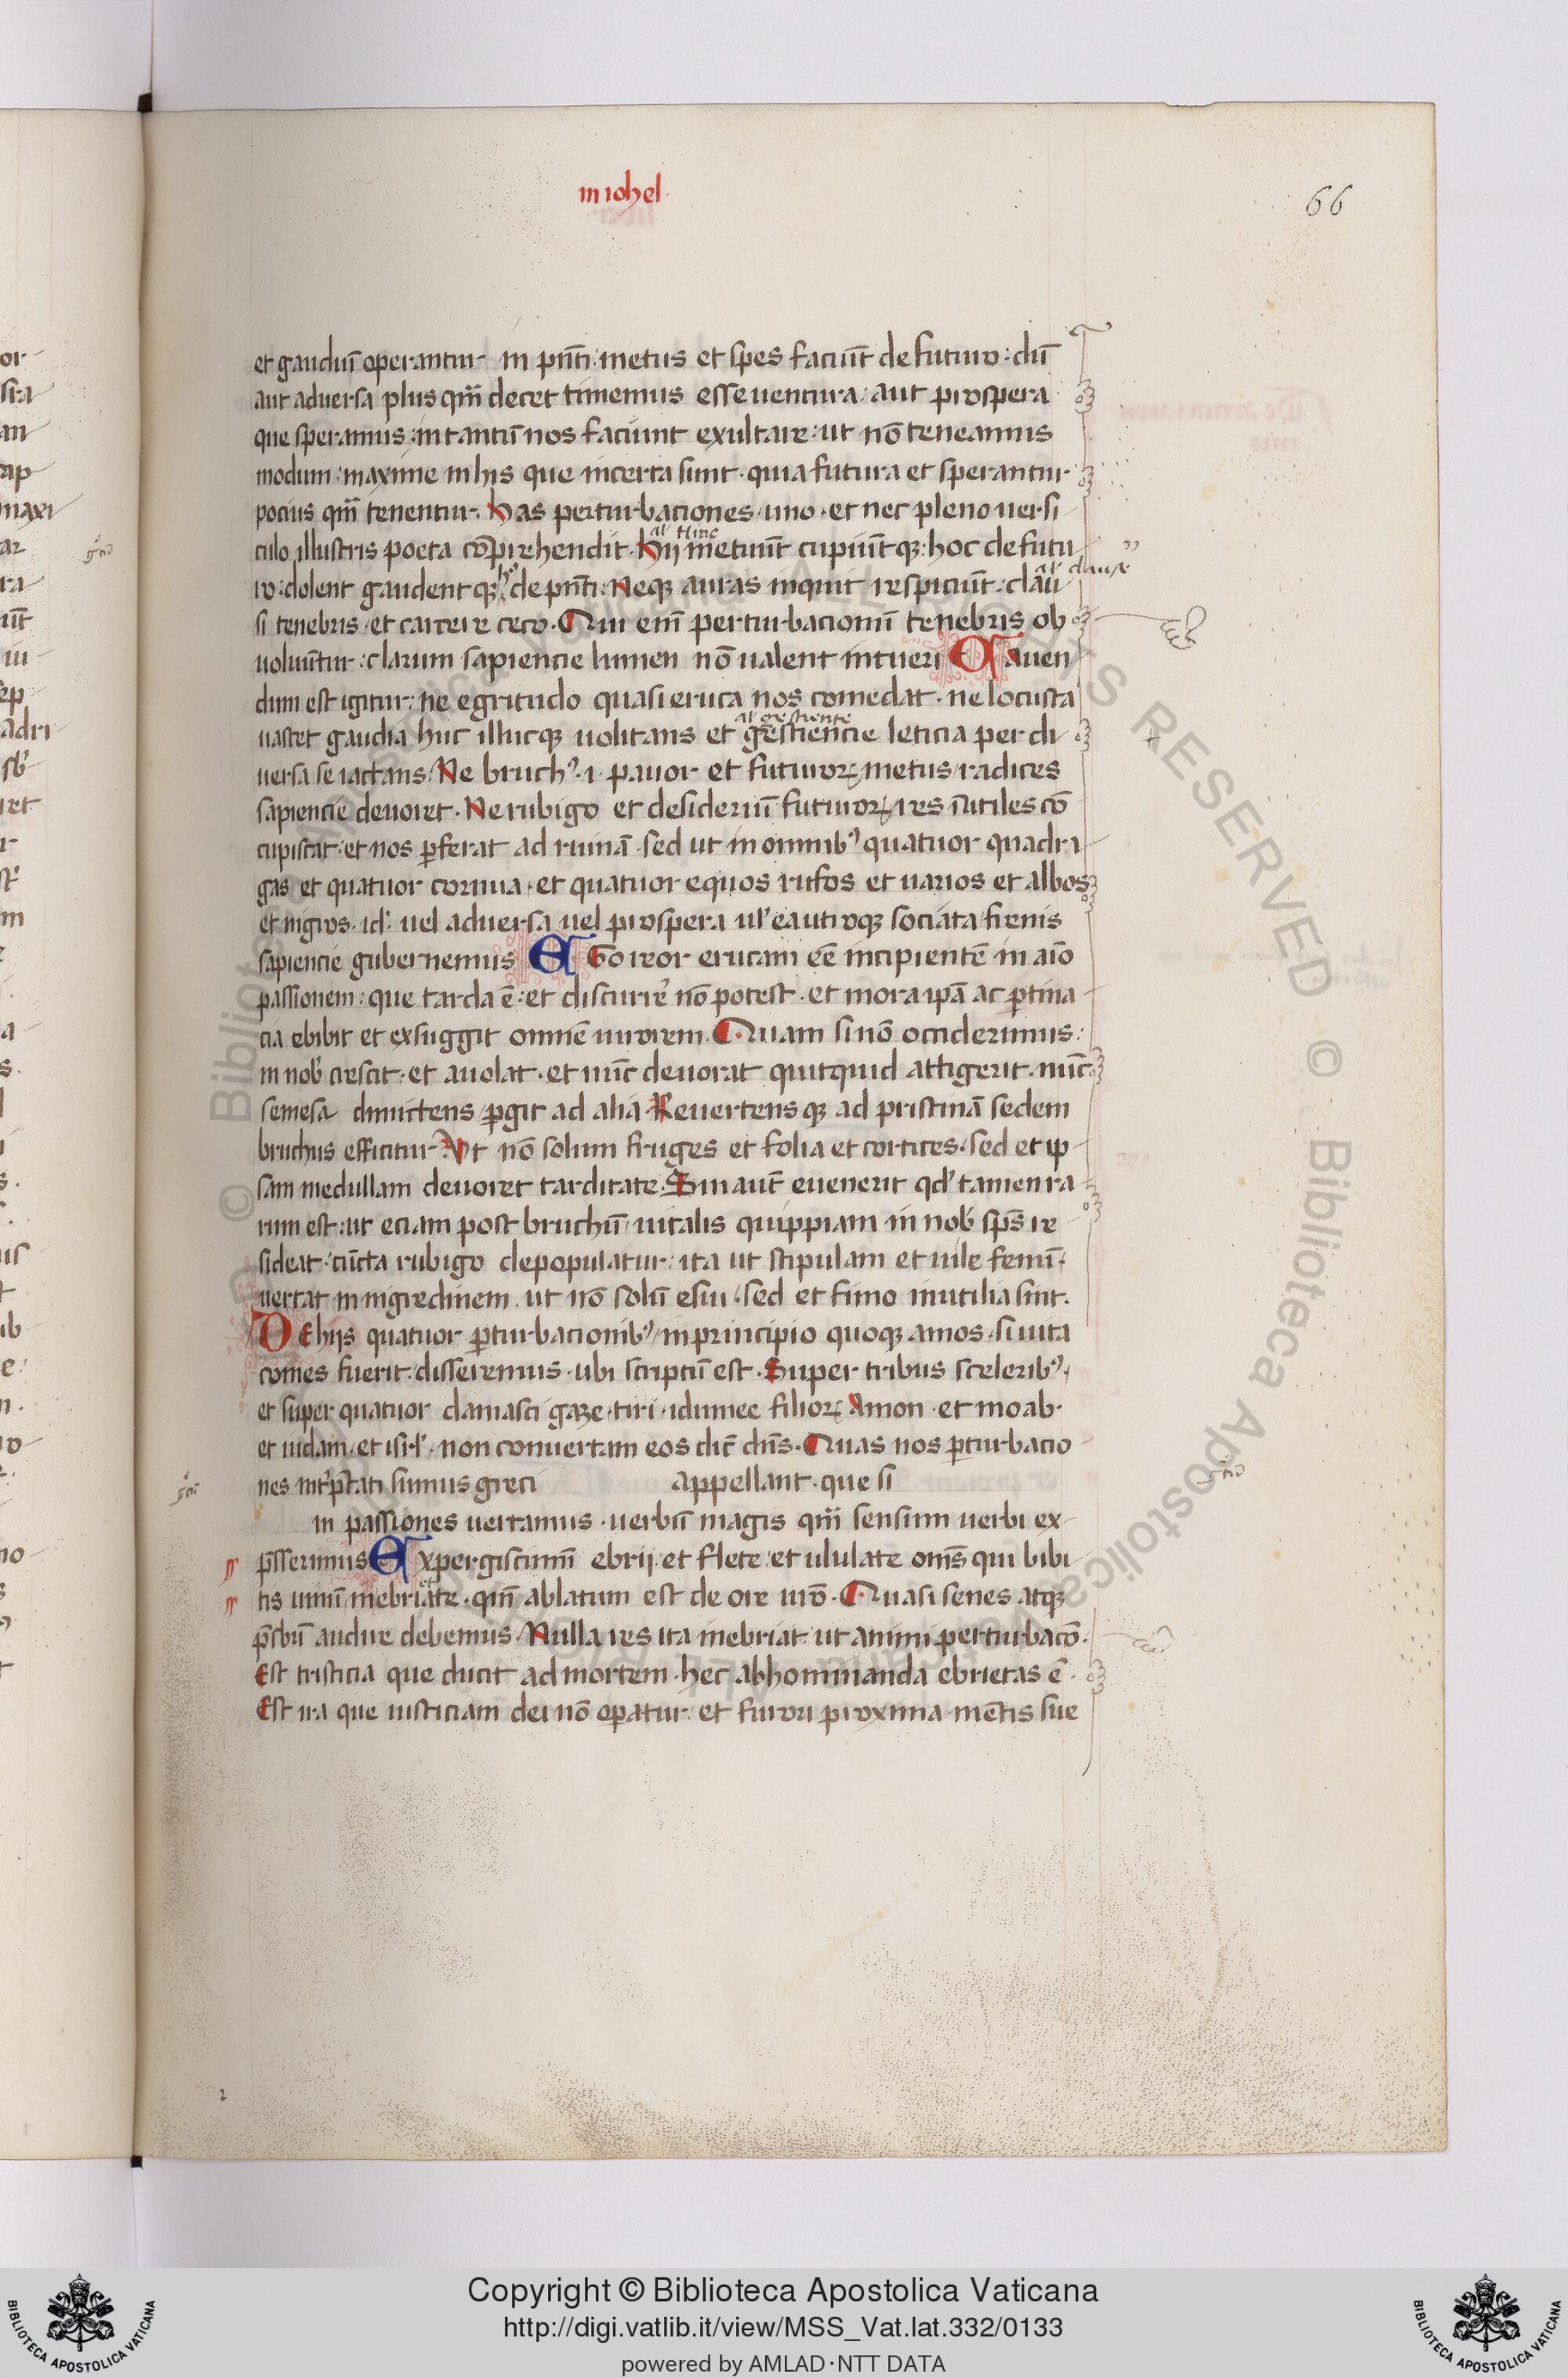 in iohel
66
et gaudiū operantur in pn̄ti: metus et spes faciūt de futuro: dū
aut aduersa plus qm̄ decet timemus esse uentura: aut prospera
que speramus: in tantū nos faciunt exultare: ut nō teneamus
modum: maxime in his que incerta sunt. quia futura et sperantur
pocius qm̄ tenentur. Has perturbaciones uno et nec pleno uersi
al' Hinc
culo illustris poeta cōprehendit. Hij metuūt cupiūtqꝫ: hoc de futu
al' clause
ro: dolent gaudentqꝫ h° de pn̄ti. Neqꝫ auras inquit respiciūt: clau
si tenebris et carcere ceco. Qui enī perturbacionū tenebris ob
uoluūtur: clarum sapiencie lumen nō ualent intueri Cauen
dum est igitur: ne egritudo quasi eruca nos comedat. ne locusta
al' gestiente
uastet gaudia huc illucqꝫ uolitans et gestiencie leticia per di
uersa se iactans. Ne bruchꝰ .i. pauor et futuroꝝ metus radices
sapiencie deuoret. Ne rubigo et desideriū futuroꝝ res īutiles cō
cupiscat: et nos ꝑferat ad ruinā. sed ut in omnibꝰ quatuor quadri
gas et quatuor cornua et quatuor equos rufos et uarios et albos
et nigros. id: uel aduersa uel prospera ul' eautroqꝫ sociata frenis
sapiencie gubernemus EGo reor erucam eē incipientē in aīo
passionem: que tarda ē: et discurrē nō potest. et mora ipā ac ꝑtina
cia ebibit et exsuggit omnē uirorem. Quam si nō occiderimus:
in nob' crescit: et auolat. et nūc deuorat quitquid attigerit. nūc
semesa dimictens ꝑgit ad alia. Reuertensqꝫ ad pristinā sedem
bruchus efficitur. Vt nō solum fruges et folia et cortices. sed et ip
sam medullam deuoret tarditate. Sin aut̄ euenerit qd' tamen ra
rum est: ut eciam post bruchū uitalis quippiam in nob' sp̄s re
sideat: cūcta rubigo depopulatur: ita ut stipulam et uile femū
uertat in nigredinem. ut nō solū esui sed et fimo inutilia sint.
DE hijs quatuor ꝑturbacionibꝰ in principio quoqꝫ amos si uita
comes fuerit disseremus. ubi scriptū est. Super tribus sceleribꝰ
et super quatuor damasci gaze tiri idumee filioꝝ Amon et moab.
et iudam et isrl' non conuertam eos dic̄ dn̄s. Quas nos ꝑturbacio
nes int'p̄tati sumus greci appellant. que si
in passiones uertamus. uerbū magis qm̄ sensum uerbi ex
p̄sserimus Expergiscimī ebrij et flete et ululate om̄s qui bibi
tis uinū inebriate. qm̄ ablatum est de ore ur̄o. Quasi senes atqꝫ
p̄sb'ri audire debemus. Nulla res ita inebriat ut animi perturbacō.
Est tristicia que ducit ad mortem. hec abhominanda ebrietas ē.
Est ira que iusticiam dei nō oꝑatur et furori proxima mētis sue
Copyright © Biblioteca Apostolica Vaticana
http://digi.vatlib.it/view/MSS_Vat.lat.332/0133
powered by AMLAD·NTT DATA